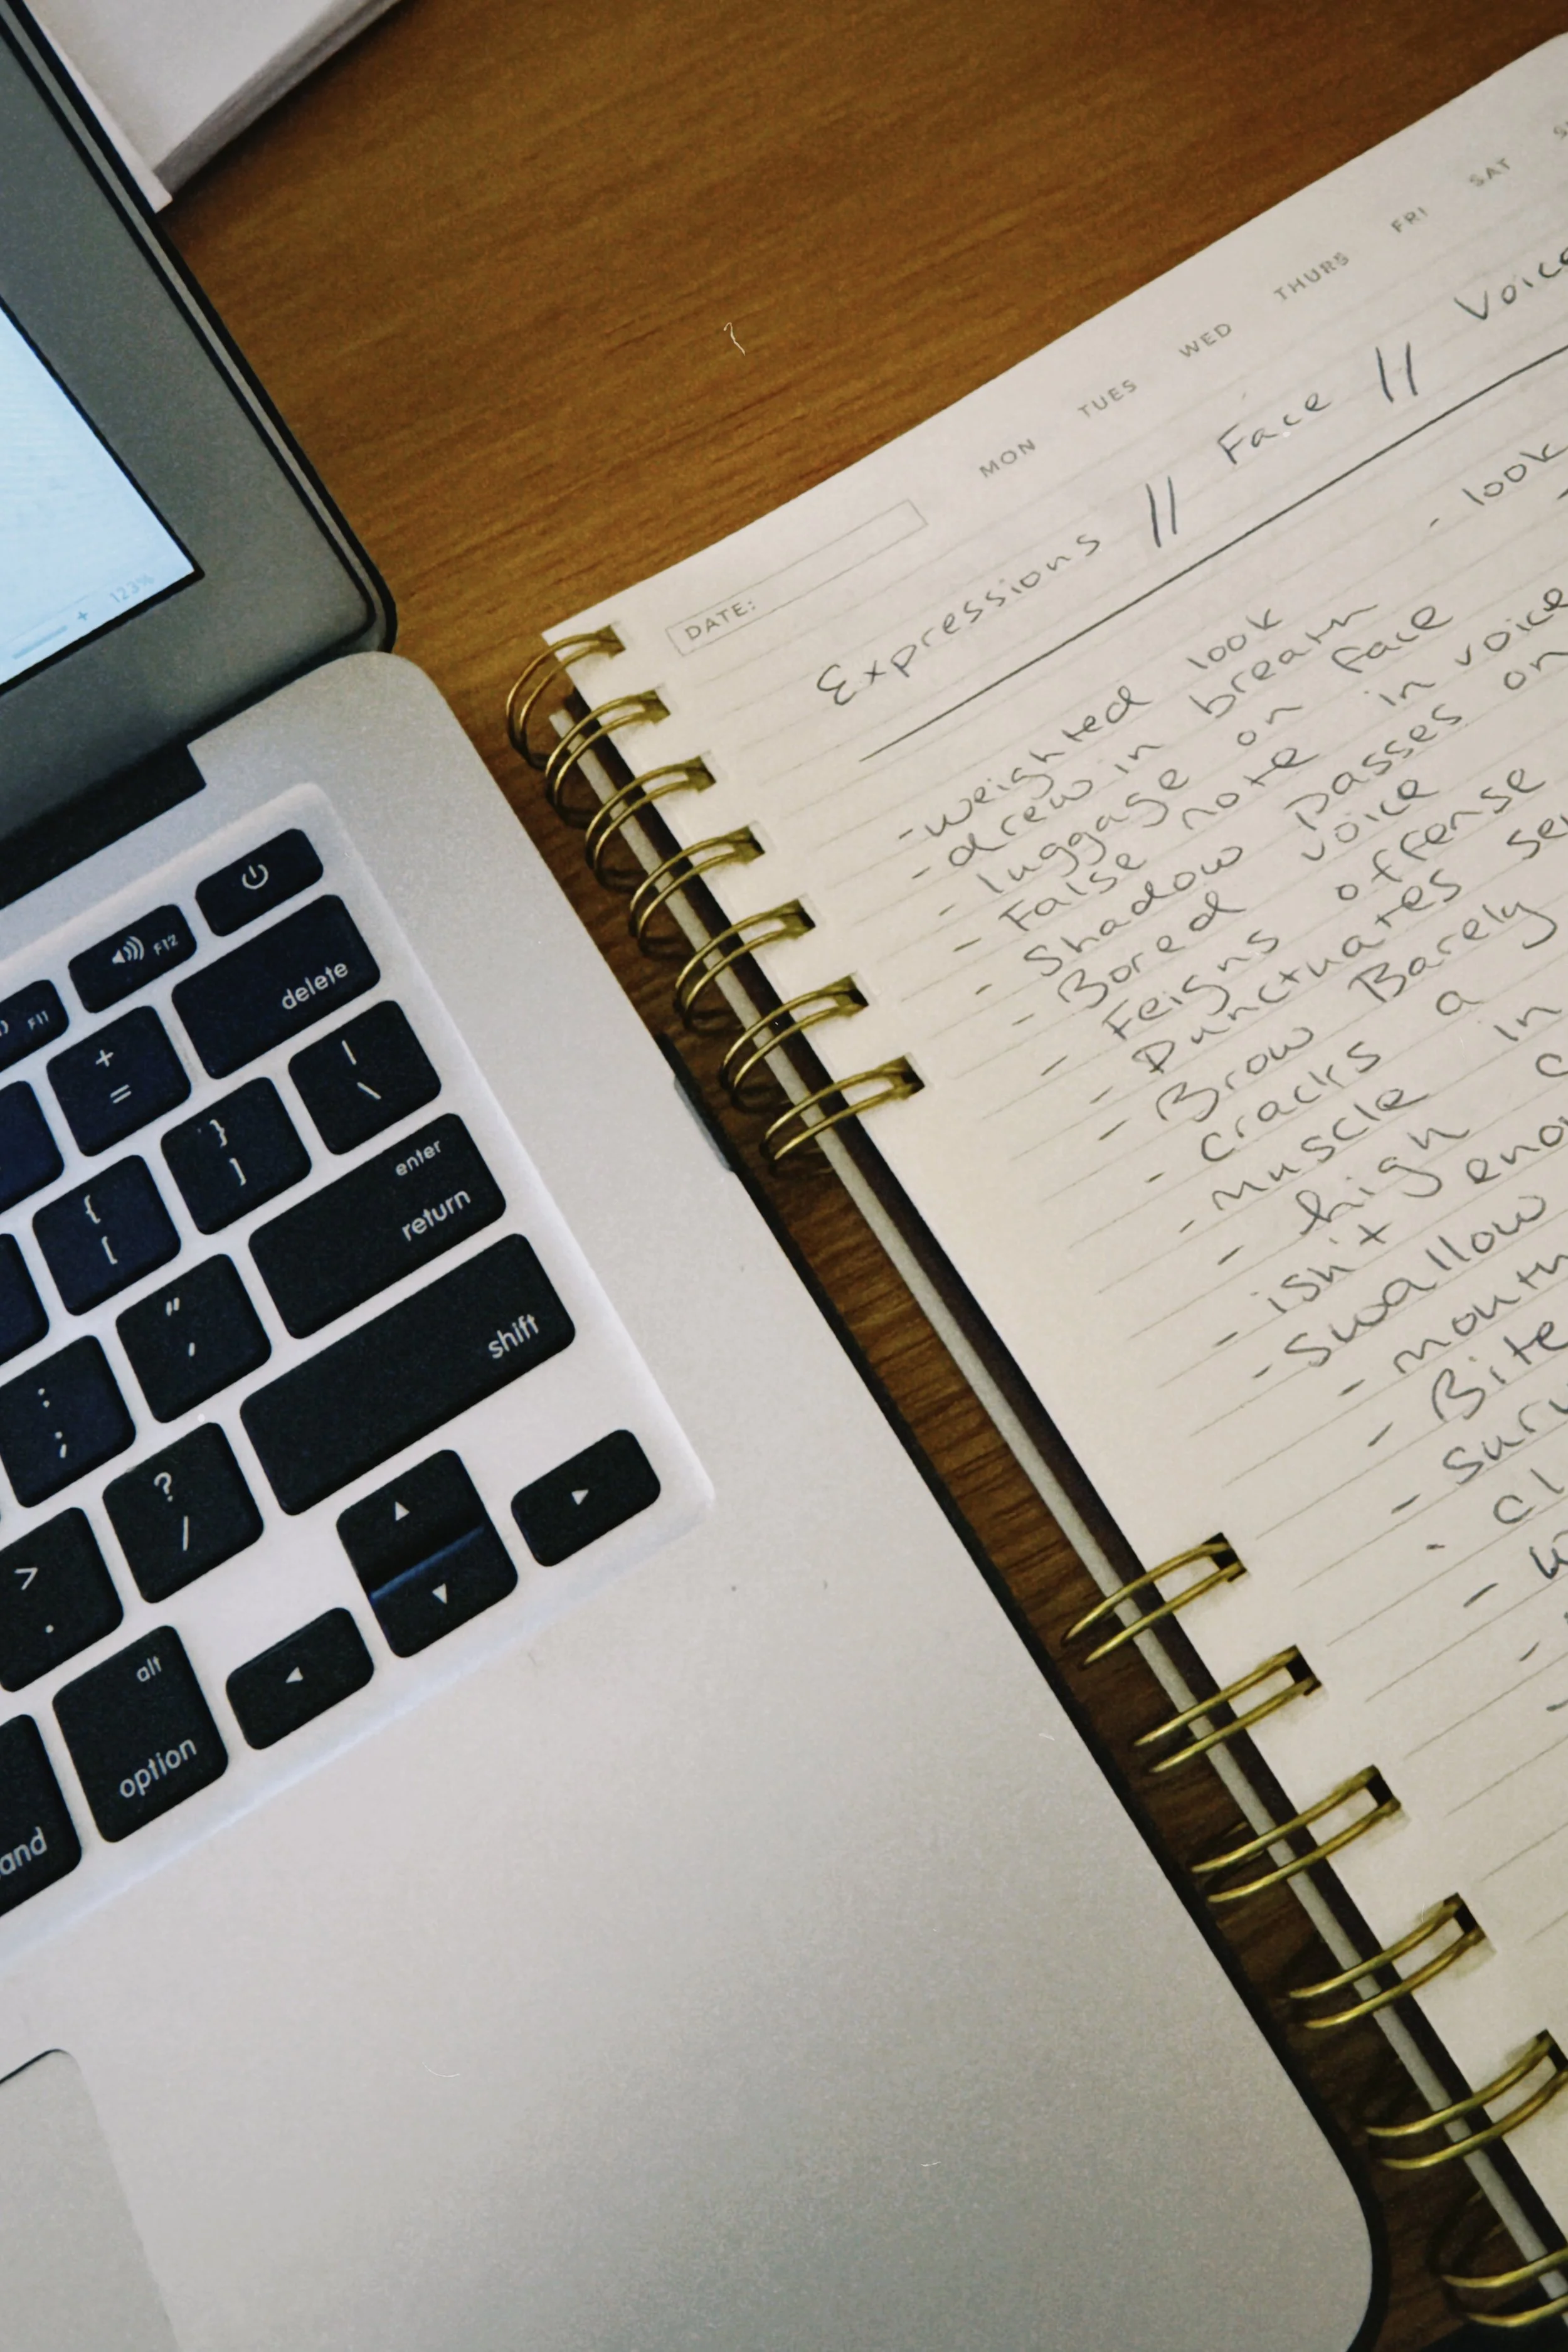 123%
F11
F12
+
=
delete
{
[
}
]
|
\
:
;
"
'
enter
return
>
.
?
/
shift
alt
option
and
DATE:
MON TUES WED THURS FRI SAT
Expressions // Face // Voice
- weighted look - look
- drew in breath
- luggage on face
- False note in voice
- Shadow passes on
- Bored voice
- Feigns offense
- Punctuates
- Brow Barely
- cracks a
- muscle in
- high
- isn't
- swallow
- mouth
- Bite